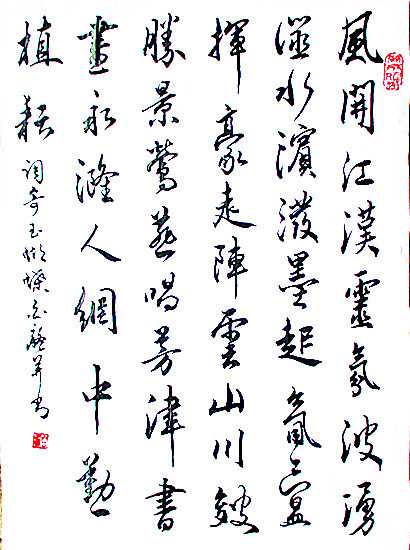 風開江漢靈氛波湧
水濱潑墨起氤氳
揮毫走陣雲山川皴
勝景鶯燕唱芳津書
畫永人網中勤
植耘
詞寄玉蝴蝶并书